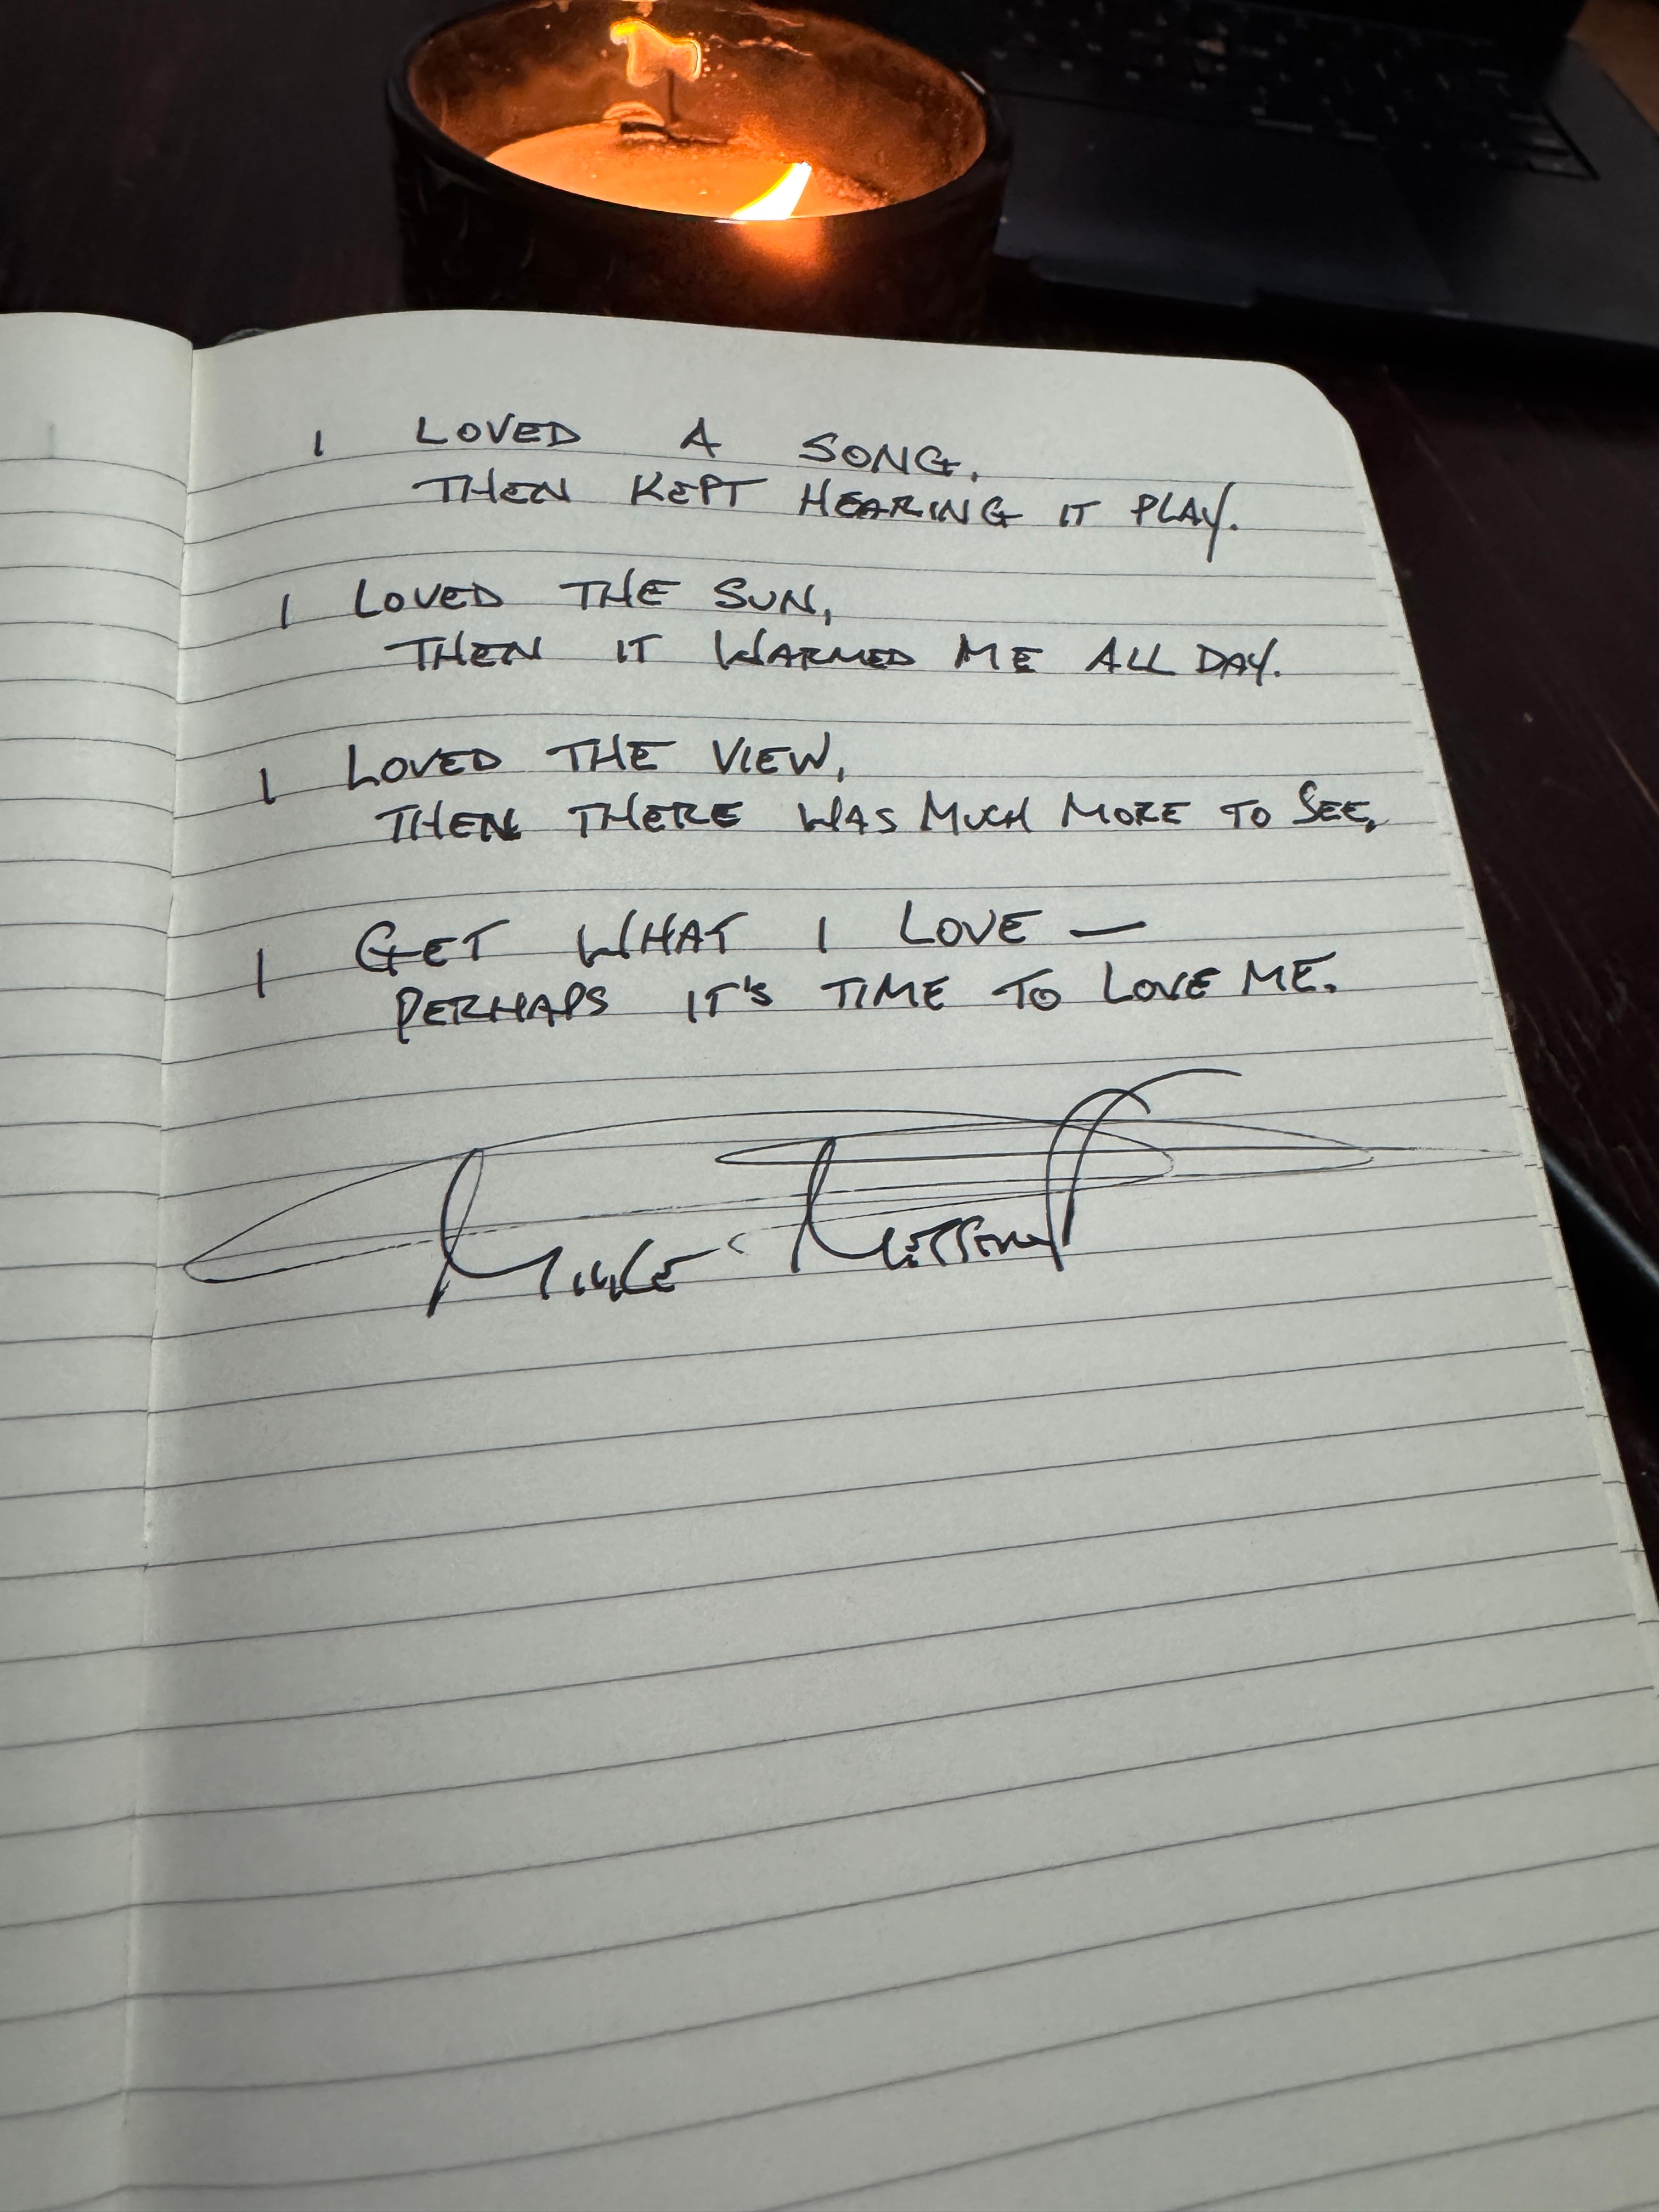 I LOVED A SONG,
THEN KEPT HEARING IT PLAY.
I LOVED THE SUN,
THEN IT WARMED ME ALL DAY.
I LOVED THE VIEW,
THEN THERE WAS MUCH MORE TO SEE,
I GET WHAT I LOVE —
PERHAPS IT'S TIME TO LOVE ME.
MIKE